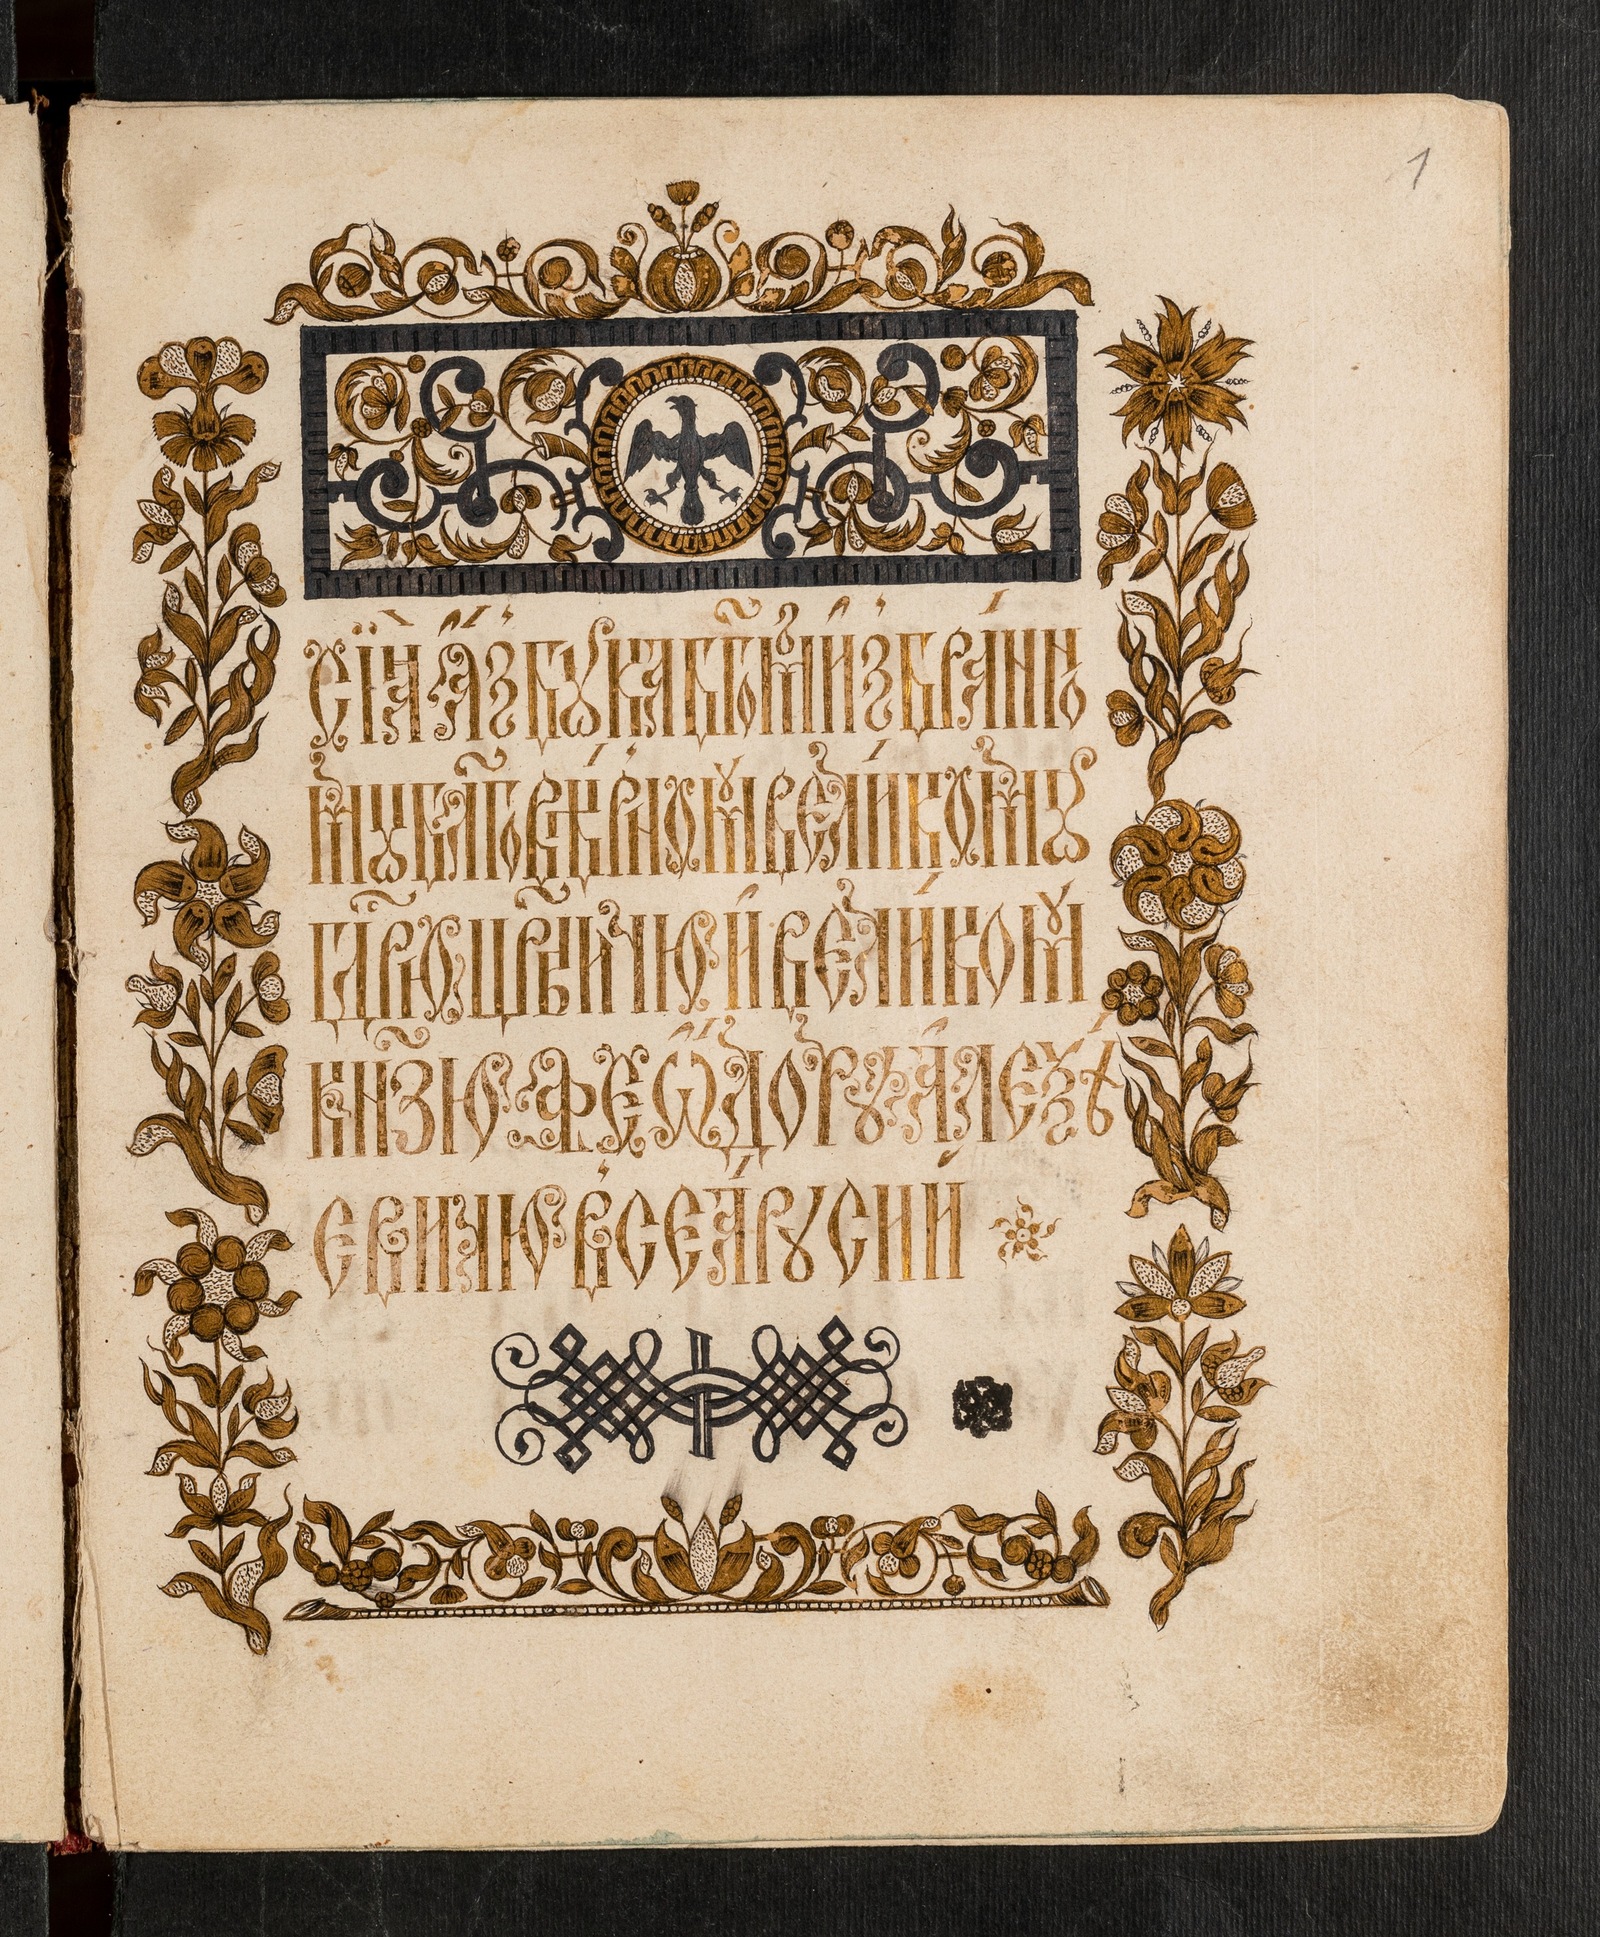 1
СІѦ АЗБꙊКА БГ҃ОМ ИЗБРАННО
МꙊ БЛГ҃ОВѢРНОМꙊ ВЕЛИКОМꙊ
ГДРЮ ЦР҃ВИЧЮ И ВЕЛИКОМꙊ
КНЗ҃Ю ФЕѠДОРꙊ АЛЕѮѢ
ЕВИЧЮ ВСЕѦ РꙊСИИ